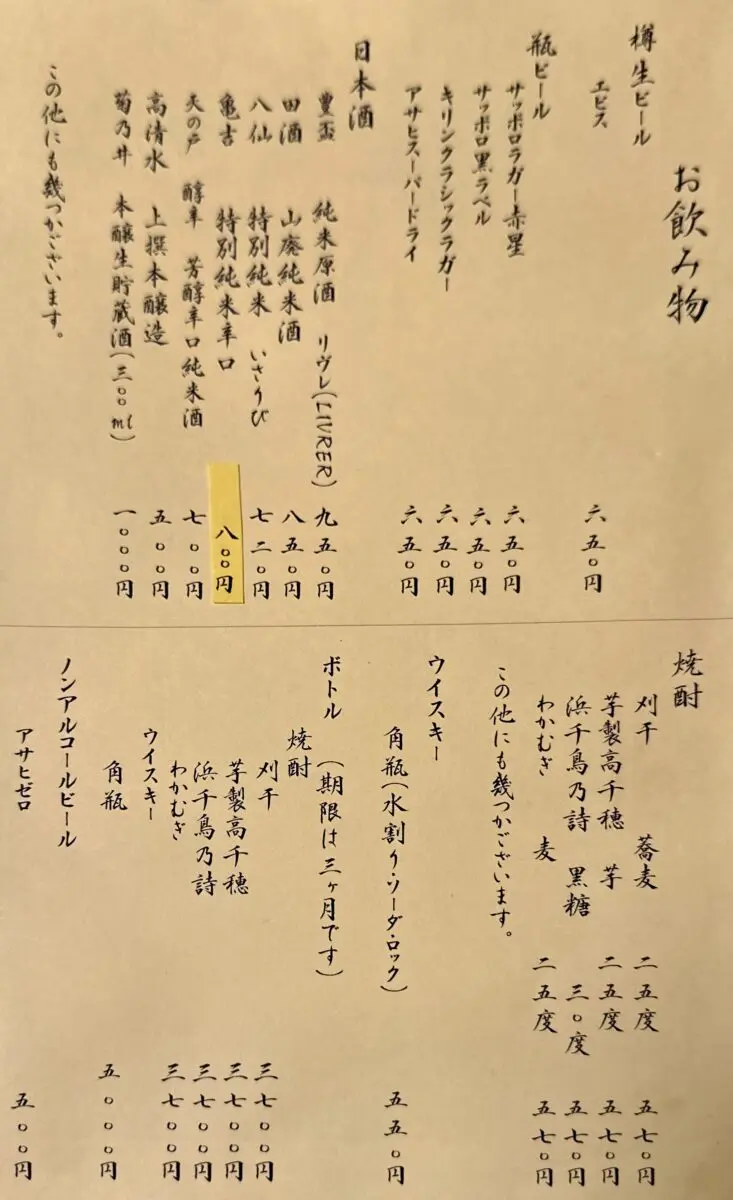 お飲み物
樽生ビール
エビス 六五〇円
瓶ビール
サッポロラガー赤星 六五〇円
サッポロ黒ラベル 六五〇円
キリンクラシックラガー 六五〇円
アサヒスーパードライ 六五〇円
日本酒
豊盃 純米原酒 リヴレ(LIVRER) 九五〇円
田酒 山廃純米酒 八五〇円
八仙 特別純米 いさりび 七二〇円
亀吉 特別純米辛口 八〇〇円
天の戸 醇辛 芳醇辛口純米酒 七〇〇円
高清水 上撰本醸造 五〇〇円
菊乃井 本醸生貯蔵酒(三〇〇ml) 一〇〇〇円
この他にも幾つかございます。
焼酎
刈干 蕎麦 二五度 五七〇円
芋製高千穂 芋 二五度 五七〇円
浜千鳥乃詩 黒糖 三〇度 五七〇円
わかむぎ 麦 二五度 五七〇円
この他にも幾つかございます。
ウイスキー
角瓶(水割り・ソーダ・ロック) 五五〇円
ボトル (期限は三ヶ月です)
焼酎
刈干 三七〇〇円
芋製高千穂 三七〇〇円
浜千鳥乃詩 三七〇〇円
わかむぎ 三七〇〇円
ウイスキー
角瓶 五〇〇〇円
ノンアルコールビール
アサヒゼロ 五〇〇円